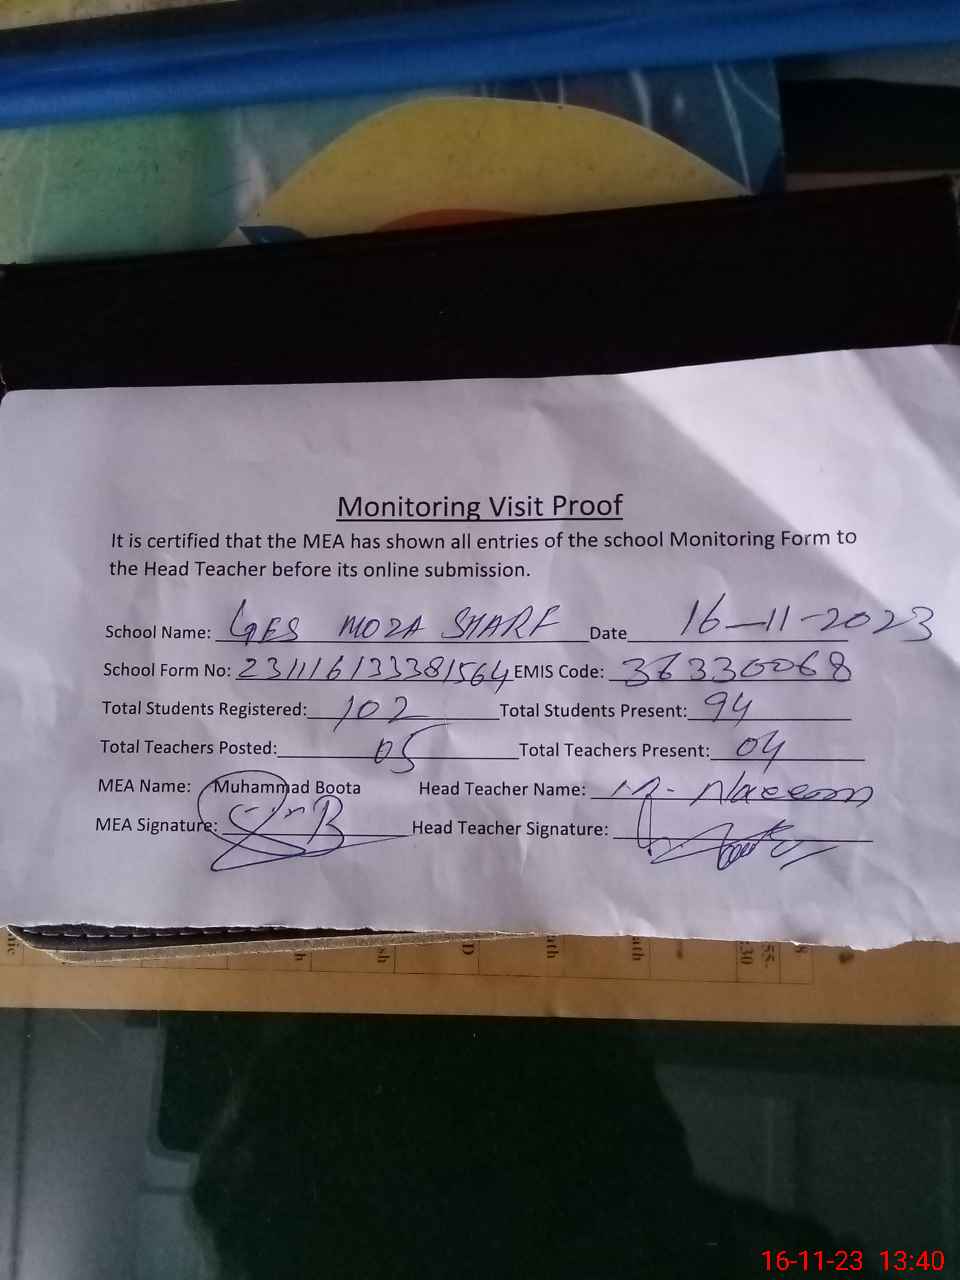 Monitoring Visit Proof
It is certified that the MEA has shown all entries of the school Monitoring Form to
the Head Teacher before its online submission.
School Name: GES MOZA SHARF Date 16-11-2023
School Form No: 231116133381564 EMIS Code: 36330068
Total Students Registered: 102 Total Students Present: 94
Total Teachers Posted: 05 Total Teachers Present: 04
MEA Name: Muhammad Boota Head Teacher Name: M. Naeem
MEA Signature: Head Teacher Signature:
16-11-23 13:40